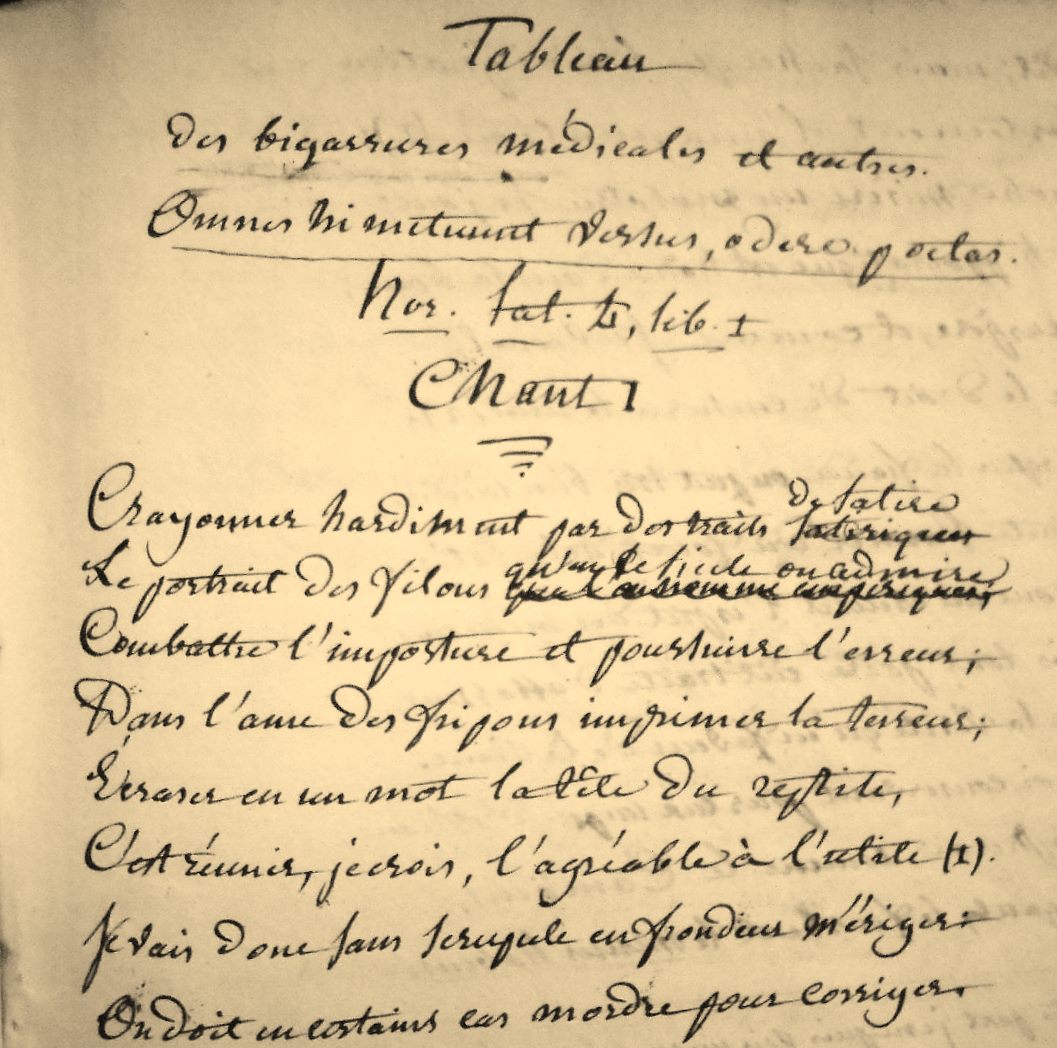 Tableau
des bigarrures médicales et autres.
Omnes hi metuunt versus, odere poetas.
hor. sat. 4, lib. 1
Chant 1
Crayonner hardiment par des traits satiriques de satire
Le portrait des filous qu'au siècle on admire,
Combattre l'imposture et poursuivre l'erreur;
Dans l'ame des fripons imprimer la terreur;
Écraser en un mot la tête du reptile,
C'est réunir, je crois, l'agréable à l'utile (1).
Je vais donc sans scrupule en frondeur m'ériger:
On doit en certains cas mordre pour corriger.